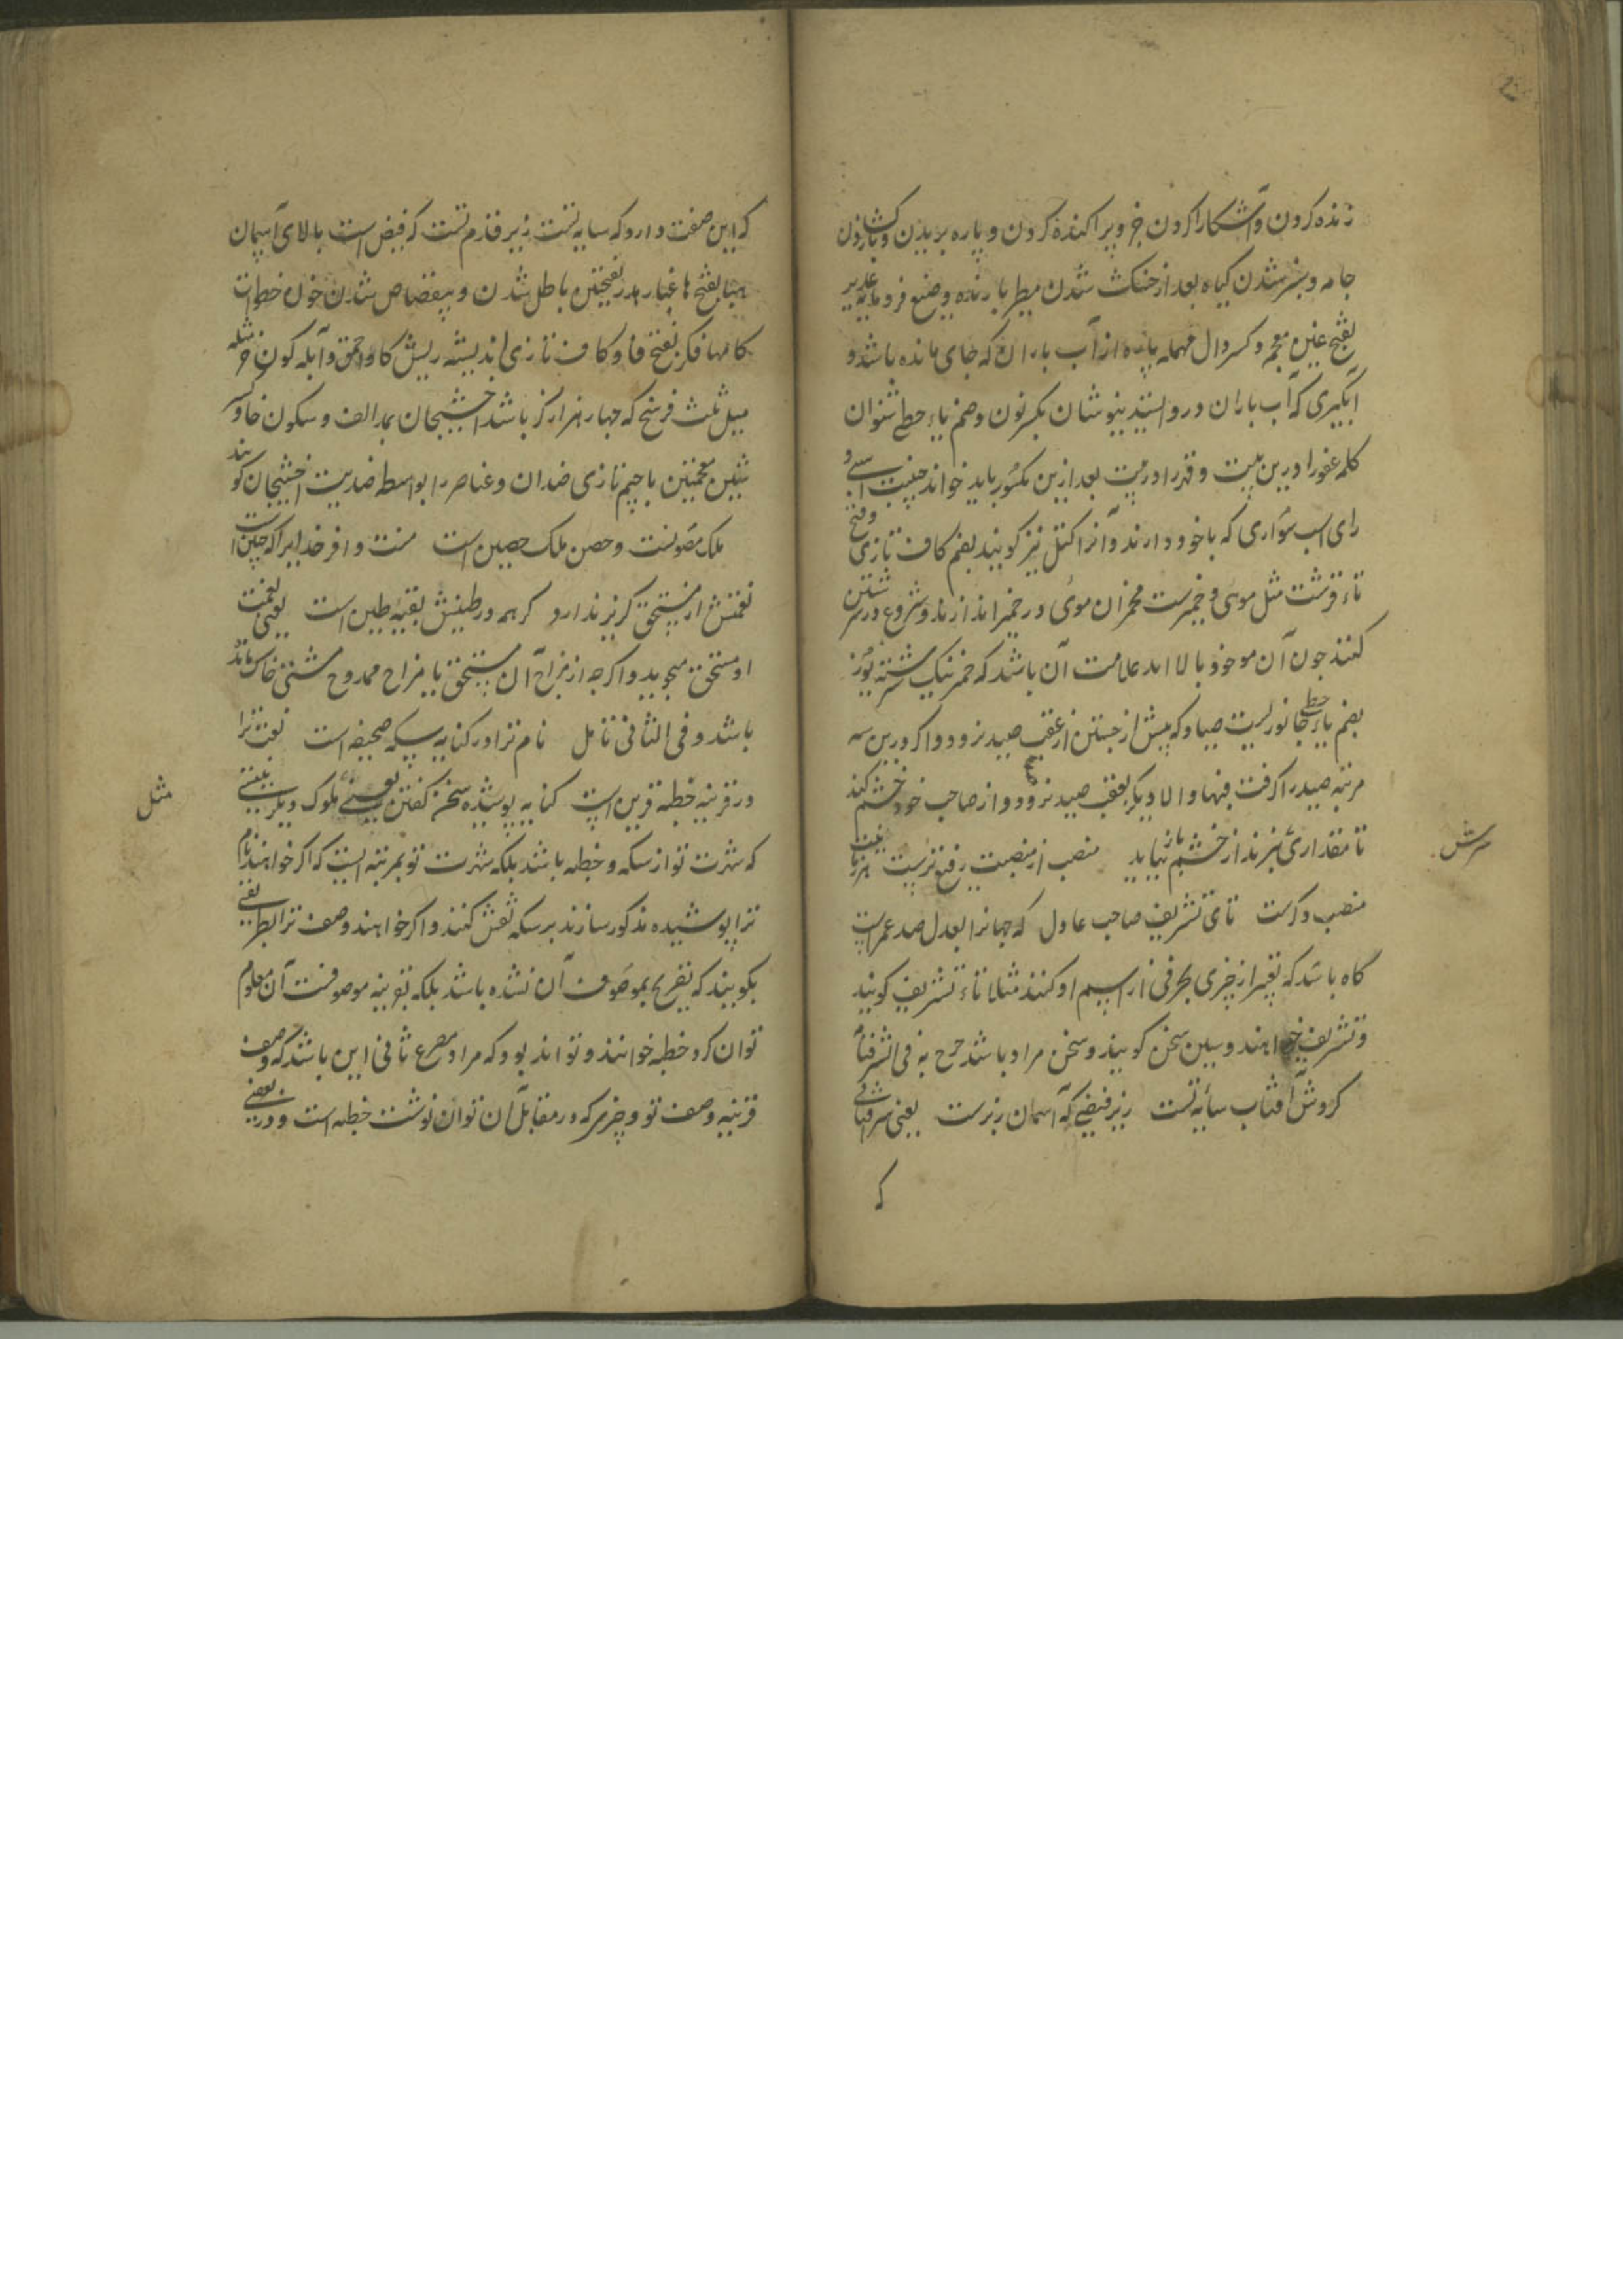 زنده کردن و آشکارا کردن خبر و پراکنده کردن و پاره بریدن و باز کشادن
جامه و سبز شدن گیاه بعد از خشک شدن مطر بارنده وضیع فرومایه غدیر
بفتح غین معجم و کسر دال مهمله پاره از آب باران که جای مانده باشد و
آبگیری که آب باران در و ایستد نیوشان بکسر نون و ضم یاء حطی شنوان
کلمه عفو را درین بیت و قدر را در بیت بعد ازین مکسور باید خواند جنیبت اسبی
رای اسب سواری که باخود دارند و آنرا کتل نیز کویند بضم کاف تازی و فتح
تاء قرشت مثل موئی و خمیرست مخمران موی در خمیر اندازند و شروع در سرشتن
کنند چون آن مو خود بالا اید علامت آن باشد که خمر نیک سرشته یوز
بضم یاء حطی جانوریست صیاد که پیش از جستن از عقب صید نرود و اکر درین سه
مرتبه صید را گرفت فبها و الا دیگر بعقب صید نرود و از صاحب خود خشم کند
تا مقداری پنیر ندهد از خشم باز نیاید منصب از منصبت رفیع ترست
منصب دگرست تای تشریف صاحب عادل که جهانرا بعدل صد عمرست
گاه باشد که تعبیر از چیزی بحرفی از اسم او کنند مثلا تاء تشریف کویند
و تشریف خواهند و سین سخن کویند و سخن مراد باشد صرح به فی الشرفنامه
گردش آفتاب سایه تست زیر فیضی که آسمان زبرست یعنی شرافتابی
که
سرش
که این صفت دارد که سایه تست زیر قدم تست که فیض است بالای آسمان
هبا بفتح ها غبار هدر بفتحتین باطل شدن و بیقصاص شدن خون خطرات
کامها فکر بفتح فا و کاف تازی اندیشه ریش کاو احمق و آبله کون خر مثله
میل ثلث فرسخ که چهار هزار گز باشد اخشیجان بمد الف و سکون خا و کسر
شین معجمتین با جیم تازی ضدان و عناصر را بواسطه ضدیت اخشیجان کویند
ملک مصونست و حصن ملک حصین است منت وافر خدایرا که چنین است
نعمتش از مستحق گزیر ندارد گر همه در طینتش بقیه طین است یعنی نعمت
او مستحق میجوید و اکر چه از مزاح آن مستحق یا مزاح ممدوح مشتی خاک مانده
باشد و فی الثانی تامل نام ترا در کنایه سکه صحیفه است نعت ترا
در قرینه خطبه قرین است کنایه پوشیده سخن گفتن یعنی ملوک دیگر نیستی
که شهرت تو از سکه و خطبه باشد بلکه شهرت تو بمرتبه ایست که اگر خواهند نام
ترا پوشیده مذکور سازند بر سکه نقش کنند و اکر خواهند وصف ترا بطریقی
بکویند که تصریح بموصوف آن نشده باشد بلکه بقرینه موصوفت آن معلوم
توان کرد خطبه خوانند و تواند بود که مراد مصرع ثانی این باشد که وصف
قرینه وصف تو و چیزی که در مقابل آن توان نوشت خطبه است و در بعضی
مثل